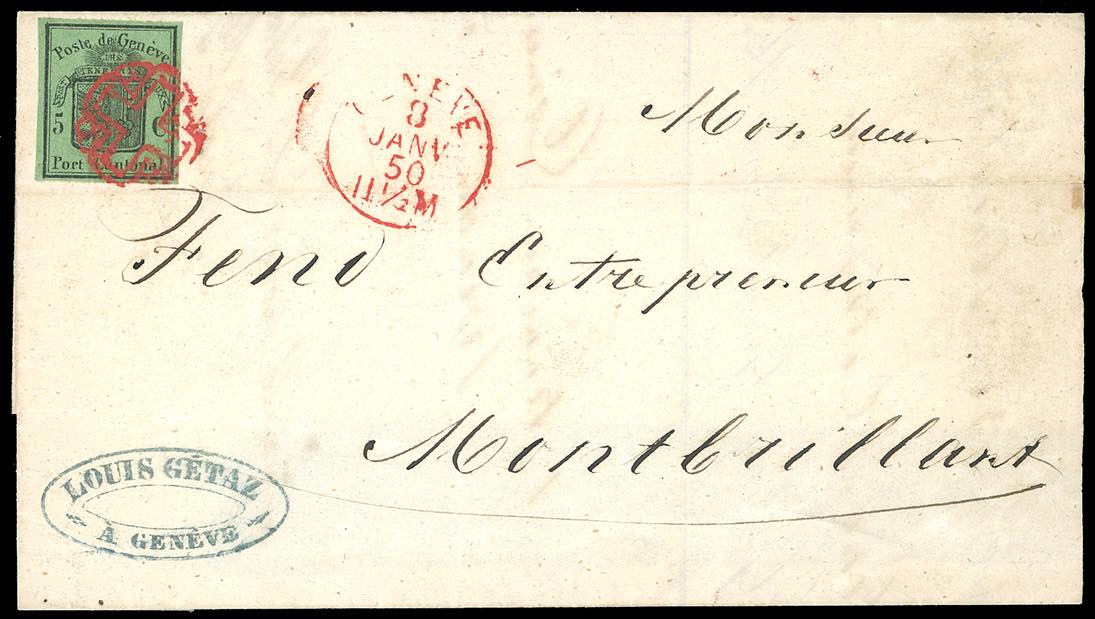 Poste de Genève
POST TENEBRAS LUX
5 C
Port Cantonal
GENEVE
8
JANV
50
11½M
Monsieur
Fend Entrepreneur
Montbrillant
LOUIS GÉTAZ
À GENÈVE